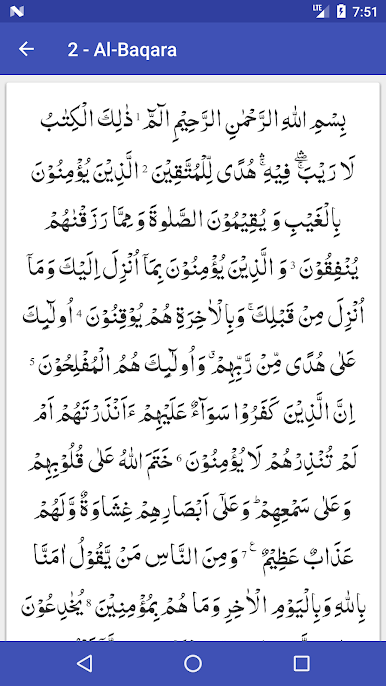 LTE 7:51
2 - Al-Baqara
بِسْمِ اللهِ الرَّحْمٰنِ الرَّحِيْمِ الٓمّٓ ۱ ذٰلِكَ الْكِتٰبُ
لَا رَيْبَ ۛۖ فِيْهِ ۛۚ هُدًى لِّلْمُتَّقِيْنَ ۲ الَّذِيْنَ يُؤْمِنُوْنَ
بِالْغَيْبِ وَ يُقِيْمُوْنَ الصَّلٰوةَ وَ مِمَّا رَزَقْنٰهُمْ
يُنْفِقُوْنَ ۳ وَ الَّذِيْنَ يُؤْمِنُوْنَ بِمَآ اُنْزِلَ اِلَيْكَ وَ مَآ
اُنْزِلَ مِنْ قَبْلِكَ ۚ وَبِالْاٰخِرَةِ هُمْ يُوْقِنُوْنَ ۴ اُولٰٓئِكَ
عَلٰى هُدًى مِّنْ رَّبِّهِمْ ۗ وَاُولٰٓئِكَ هُمُ الْمُفْلِحُوْنَ ۵
اِنَّ الَّذِيْنَ كَفَرُوْا سَوَآءٌ عَلَيْهِمْ ءَاَنْذَرْتَهُمْ اَمْ
لَمْ تُنْذِرْهُمْ لَا يُؤْمِنُوْنَ ۶ خَتَمَ اللهُ عَلٰى قُلُوْبِهِمْ
وَعَلٰى سَمْعِهِمْ ؕ وَعَلٰٓى اَبْصَارِهِمْ غِشَاوَةٌ وَّلَهُمْ
عَذَابٌ عَظِيْمٌ ۧ ۷ وَمِنَ النَّاسِ مَنْ يَّقُوْلُ اٰمَنَّا
بِاللهِ وَبِالْيَوْمِ الْاٰخِرِ وَمَا هُمْ بِمُؤْمِنِيْنَ ۸ يُخٰدِعُوْنَ